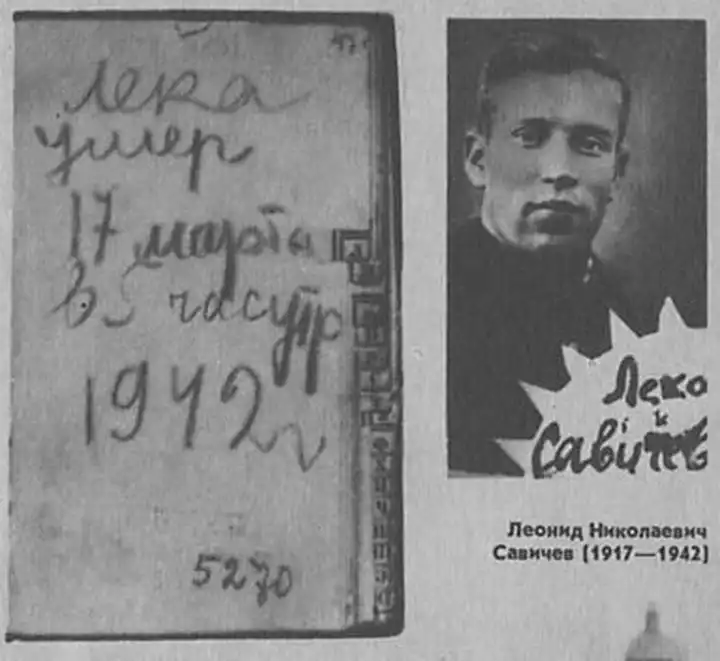 Лека
умер
17 марта
в 5 часутр
1942 г
5270
Леко
Савичев
Леонид Николаевич
Савичев (1917—1942)